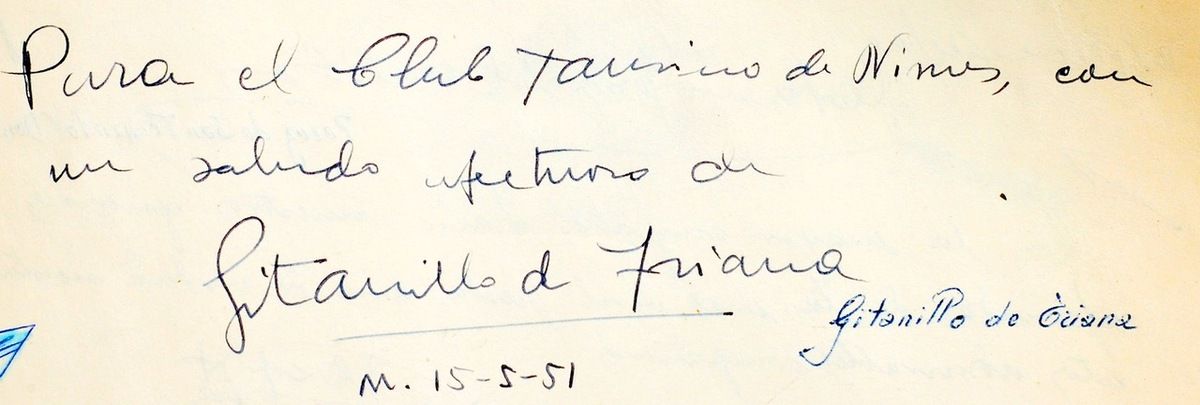 Para el Club Taurino de Nimes, con
un saludo afectuoso de
Gitanillo d Triana
Gitanillo de Triana
M. 15-5-51